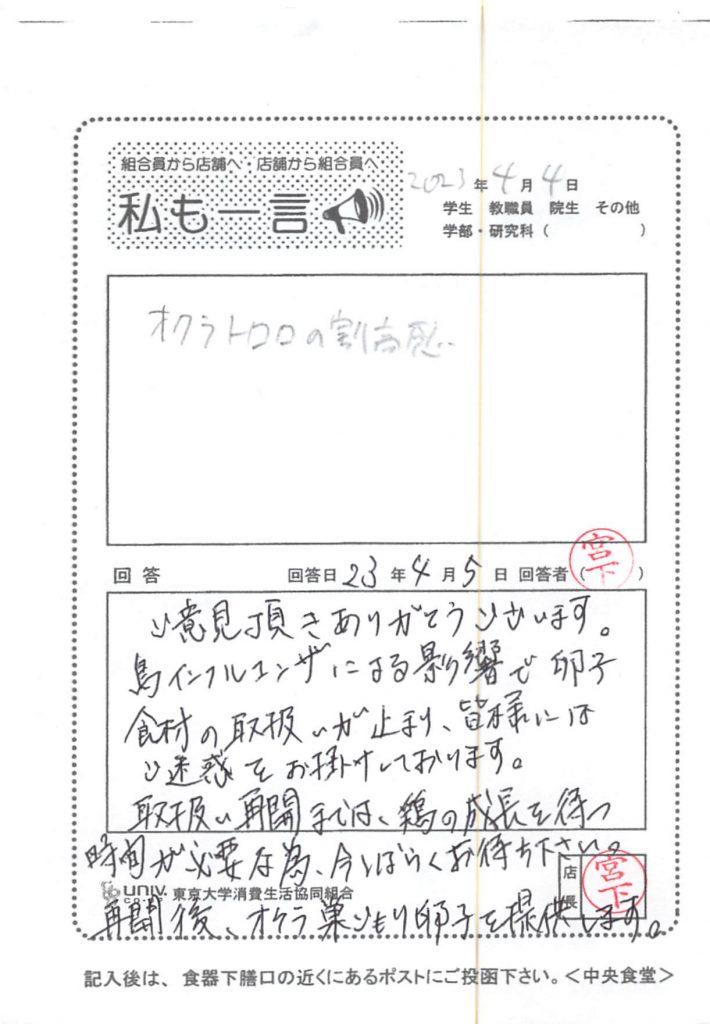 組合員から店舗へ・店舗から組合員へ
私も一言
2023年4月4日
学生 教職員 院生 その他
学部・研究科( )
オクラトロロの割高感…
回答 回答日23年4月5日 回答者(宮下)
ご意見頂きありがとうございます。
鳥インフルエンザによる影響で卵子
食材の取扱いが止まり、皆様には
ご迷惑をお掛けしております。
取扱い再開までは、鶏の成長を待つ
時間が必要な為、今しばらくお待ち下さい。
店長 宮下
univ. CO-OP 東京大学消費生活協同組合
再開後、オクラ巣ごもり卵子を提供します。
記入後は、食器下膳口の近くにあるポストにご投函下さい。<中央食堂>